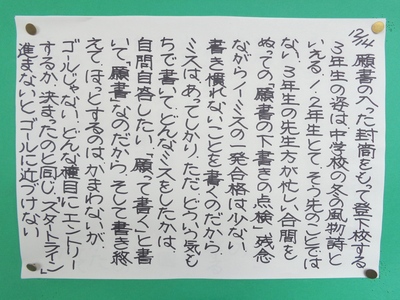 12/14
願書の入った封筒をもって登下校する
3年生の姿は中学校の冬の風物詩と
いえる!1.2年生とて、そう先のことでは
ない。3年生の先生方が忙しい合間を
ぬっての「願書の下書きの点検」残念
ながらノーミスの一発合格は少ない。
書き慣れないことを書くのだから、
ミスはあってしかり。ただ、どういう気も
ちで書いて、どんなミスをしたかは、
自問自答したい。「願って書く」と書
いて「願書」なのだから。そして書き終
えて、ほっとするのはかまわないが、
ゴールじゃない。どんな種目に、エントリー
するか決まったのと同じ。"スターライン"
進まないとゴールに近づけない